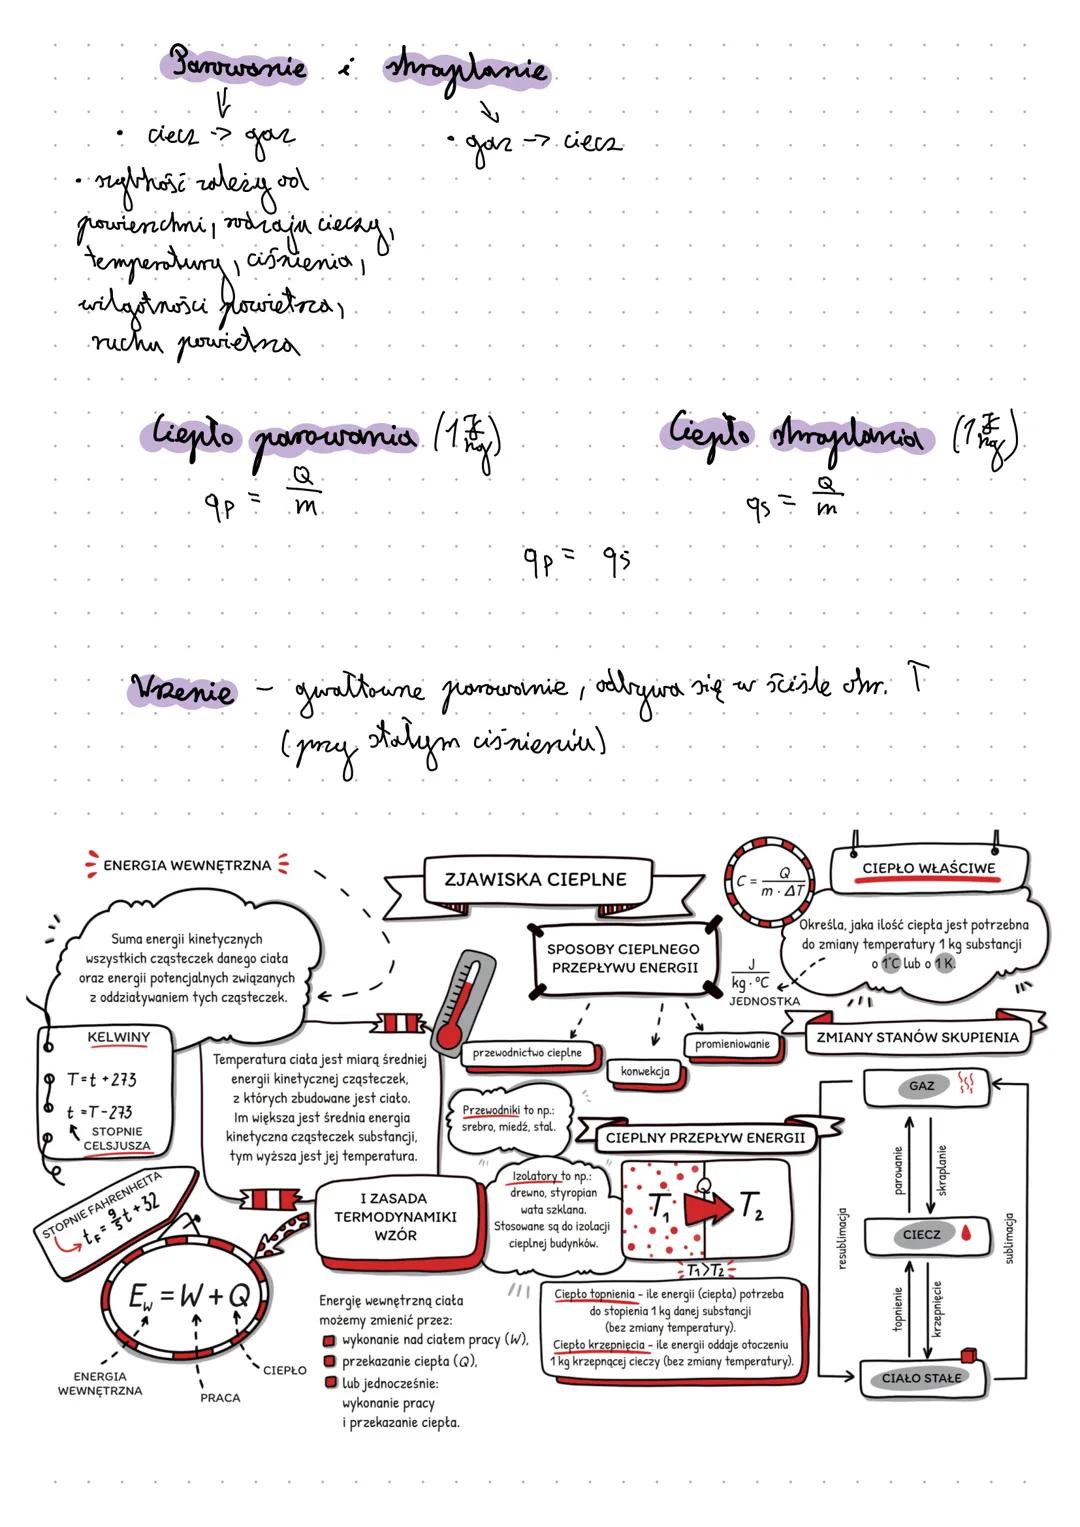 Parowanie i skraplanie
• ciecz -> gaz
• gaz -> ciecz
• szybkość zależy od
powierzchni, rodzaju cieczy,
temperatury, ciśnienia,
wilgotności powietrza,
ruchu powietrza
Ciepło parowania (1 J/kg)
Ciepło skraplania (1 J/kg)
qp = Q/m
qs = Q/m
qp = qs
Wrzenie – gwałtowne parowanie, odbywa się w ściśle okr. T
(przy stałym ciśnieniu)
ENERGIA WEWNĘTRZNA
Suma energii kinetycznych
wszystkich cząsteczek danego ciała
oraz energii potencjalnych związanych
z oddziaływaniem tych cząsteczek.
ZJAWISKA CIEPLNE
C = Q/m · ΔT
CIEPŁO WŁAŚCIWE
Określa, jaka ilość ciepła jest potrzebna
do zmiany temperatury 1 kg substancji
o 1°C lub o 1 K.
J/kg · °C
JEDNOSTKA
SPOSOBY CIEPLNEGO
PRZEPŁYWU ENERGII
przewodnictwo cieplne
konwekcja
promieniowanie
KELWINY
T=t+273
t=T-273
STOPNIE
CELSJUSZA
Temperatura ciała jest miarą średniej
energii kinetycznej cząsteczek,
z których zbudowane jest ciało.
Im większa jest średnia energia
kinetyczna cząsteczek substancji,
tym wyższa jest jej temperatura.
Przewodniki to np.:
srebro, miedź, stal.
Izolatory to np.:
drewno, styropian
wata szklana.
Stosowane są do izolacji
cieplnej budynków.
CIEPLNY PRZEPŁYW ENERGII
T₁ Q T₂
T₁>T₂
ZMIANY STANÓW SKUPIENIA
GAZ
parowanie
skraplanie
CIECZ
resublimacja
sublimacja
topnienie
krzepnięcie
CIAŁO STAŁE
STOPNIE FAHRENHEITA
tF = 9/5 t + 32
I ZASADA
TERMODYNAMIKI
WZÓR
Ew = W + Q
ENERGIA
WEWNĘTRZNA
PRACA
CIEPŁO
Energię wewnętrzną ciała
możemy zmienić przez:
wykonanie nad ciałem pracy (W),
przekazanie ciepła (Q),
lub jednocześnie:
wykonanie pracy
i przekazanie ciepła.
Ciepło topnienia – ile energii (ciepła) potrzeba
do stopienia 1 kg danej substancji
(bez zmiany temperatury).
Ciepło krzepnięcia – ile energii oddaje otoczeniu
1 kg krzepnącej cieczy (bez zmiany temperatury).